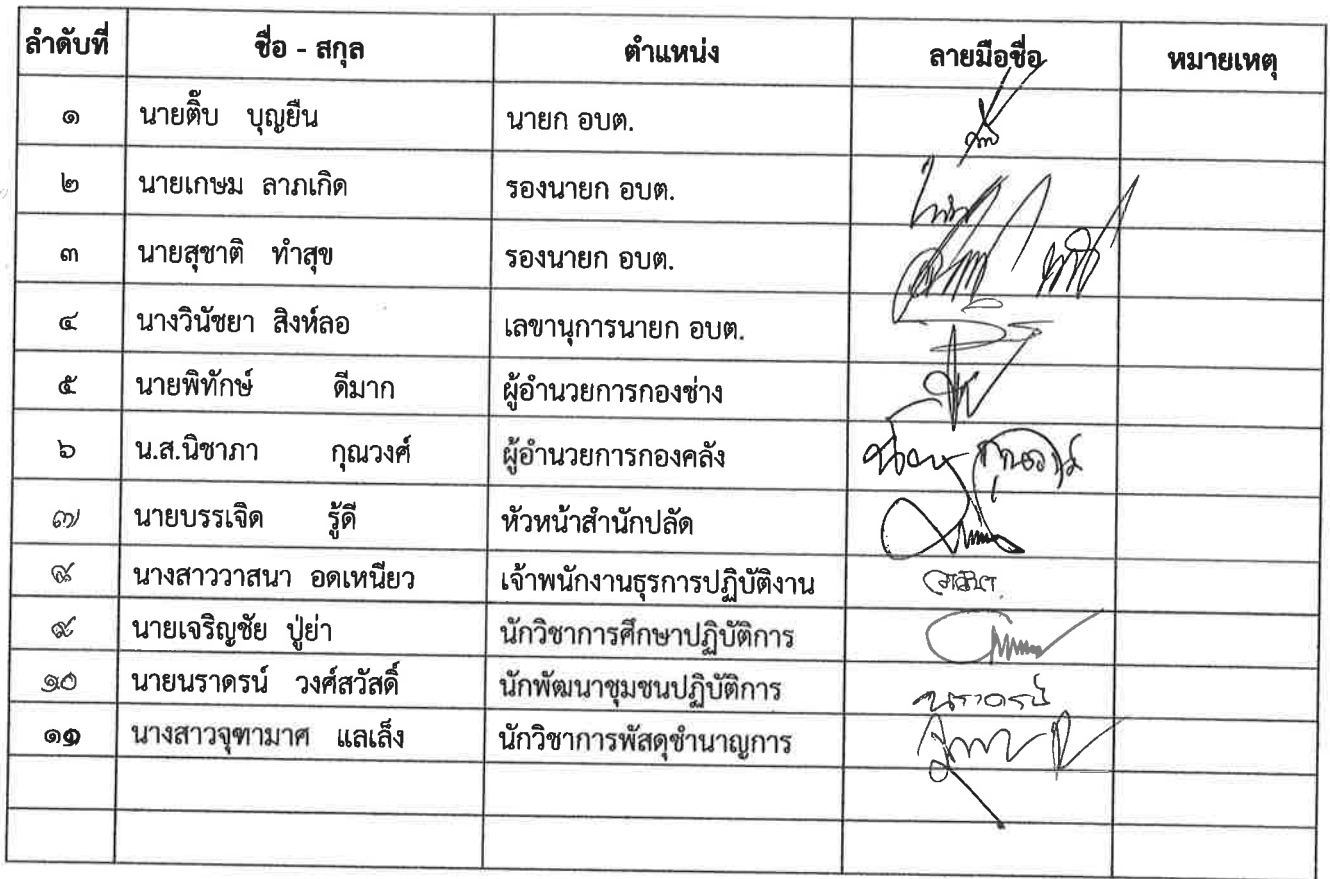 ลำดับที่ ชื่อ - สกุล ตำแหน่ง ลายมือชื่อ หมายเหตุ
๑ นายติ๊บ บุญยืน นายก อบต.
๒ นายเกษม ลาภเกิด รองนายก อบต.
๓ นายสุชาติ ทำสุข รองนายก อบต.
๔ นางวินัชยา สิงห์ลอ เลขานุการนายก อบต.
๕ นายพิทักษ์ ดีมาก ผู้อำนวยการกองช่าง
๖ น.ส.นิชาภา กุณวงศ์ ผู้อำนวยการกองคลัง
๗ นายบรรเจิด รู้ดี หัวหน้าสำนักปลัด
๘ นางสาววาสนา อดเหนียว เจ้าพนักงานธุรการปฏิบัติงาน วาสนา
๙ นายเจริญชัย ปู่ย่า นักวิชาการศึกษาปฏิบัติการ
๑๐ นายนราดรน์ วงศ์สวัสดิ์ นักพัฒนาชุมชนปฏิบัติการ นราดรน์
๑๑ นางสาวจุฑามาศ แลเล็ง นักวิชาการพัสดุชำนาญการ